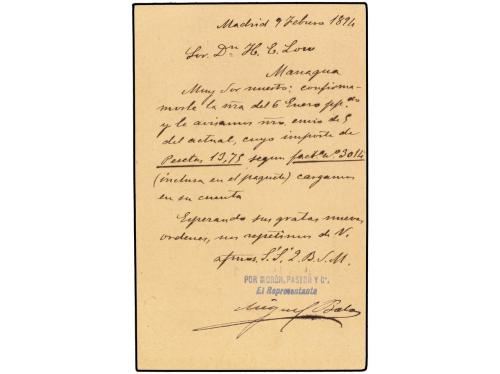 Madrid 9 Febrero 1894
Sor. Dn. H. C. Low
Managua
Muy Sor nuestro: confirma-
mosle la nra del 6 Enero pp.do
y le avisamos nro. envio de 5
del actual, cuyo importe de
Pesetas 13,75 segun fact.ª nº 3014
(inclusa en el paquete) cargamos
en su cuenta
Esperando sus gratas nuevas
ordenes, nos repetimos de V.
afmos. S.S. Q.B.S.M.
POR MORÓN, PASTOR Y Cª.
El Representante
Miguel